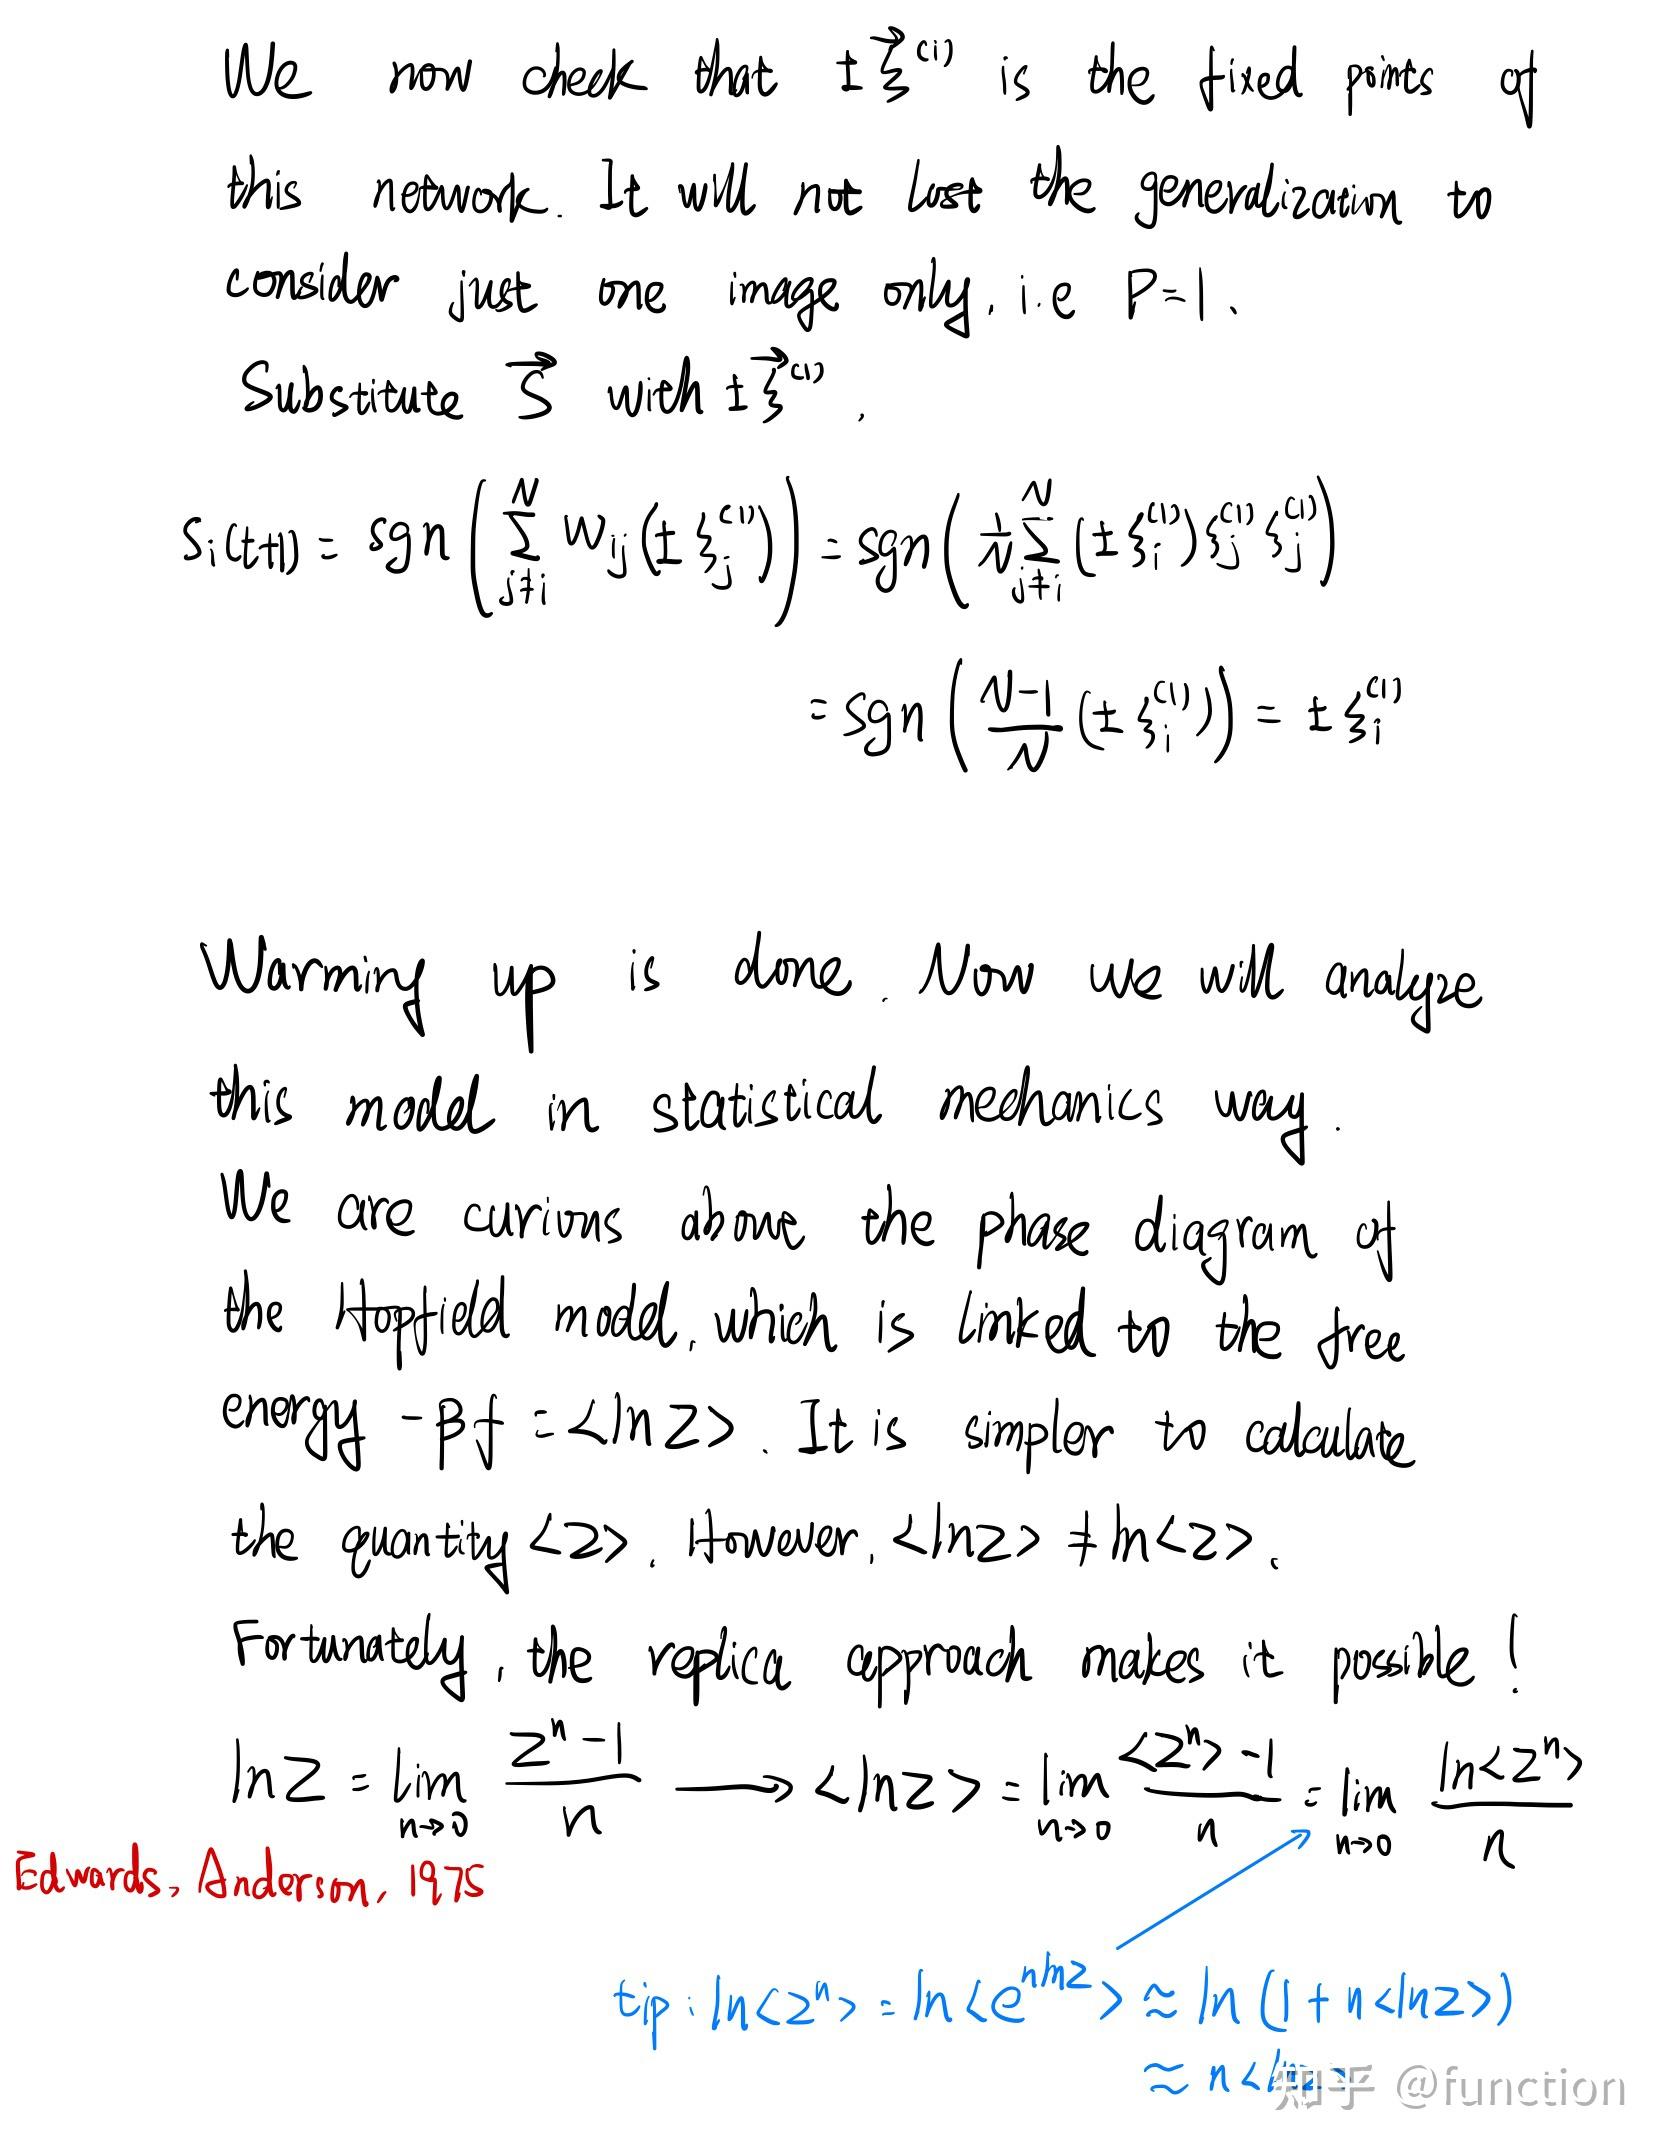 We now check that ±ξ⃗⁽ⁱ⁾ is the fixed points of
this network. It will not lost the generalization to
consider just one image only, i.e P=1.
Substitute S⃗ with ±ξ⃗⁽¹⁾.
Sᵢ(t+1) = sgn(∑_{j≠i}^{N} W_{ij}(±ξ_j^{(1)})) = sgn(1/N ∑_{j≠i}^{N} (±ξ_i^{(1)}) ξ_j^{(1)} ξ_j^{(1)})
= sgn((N-1)/N (±ξ_i^{(1)})) = ±ξ_i^{(1)}
Warming up is done. Now we will analyze
this model in statistical mechanics way.
We are curious above the phase diagram of
the Hopfield model, which is linked to the free
energy -βf = <ln Z>. It is simpler to calculate
the quantity <Z>. However, <lnZ> ≠ ln<Z>.
Fortunately, the replica approach makes it possible!
lnZ = lim_{n→0} (Z^n - 1)/n ⟶ <lnZ> = lim_{n→0} (<Z^n> - 1)/n = lim_{n→0} ln<Z^n>/n
Edwards, Anderson, 1975
tip: ln<Z^n> = ln<e^{nlnZ}> ≈ ln(1 + n<lnZ>)
≈ n<lnZ>
知乎 @function